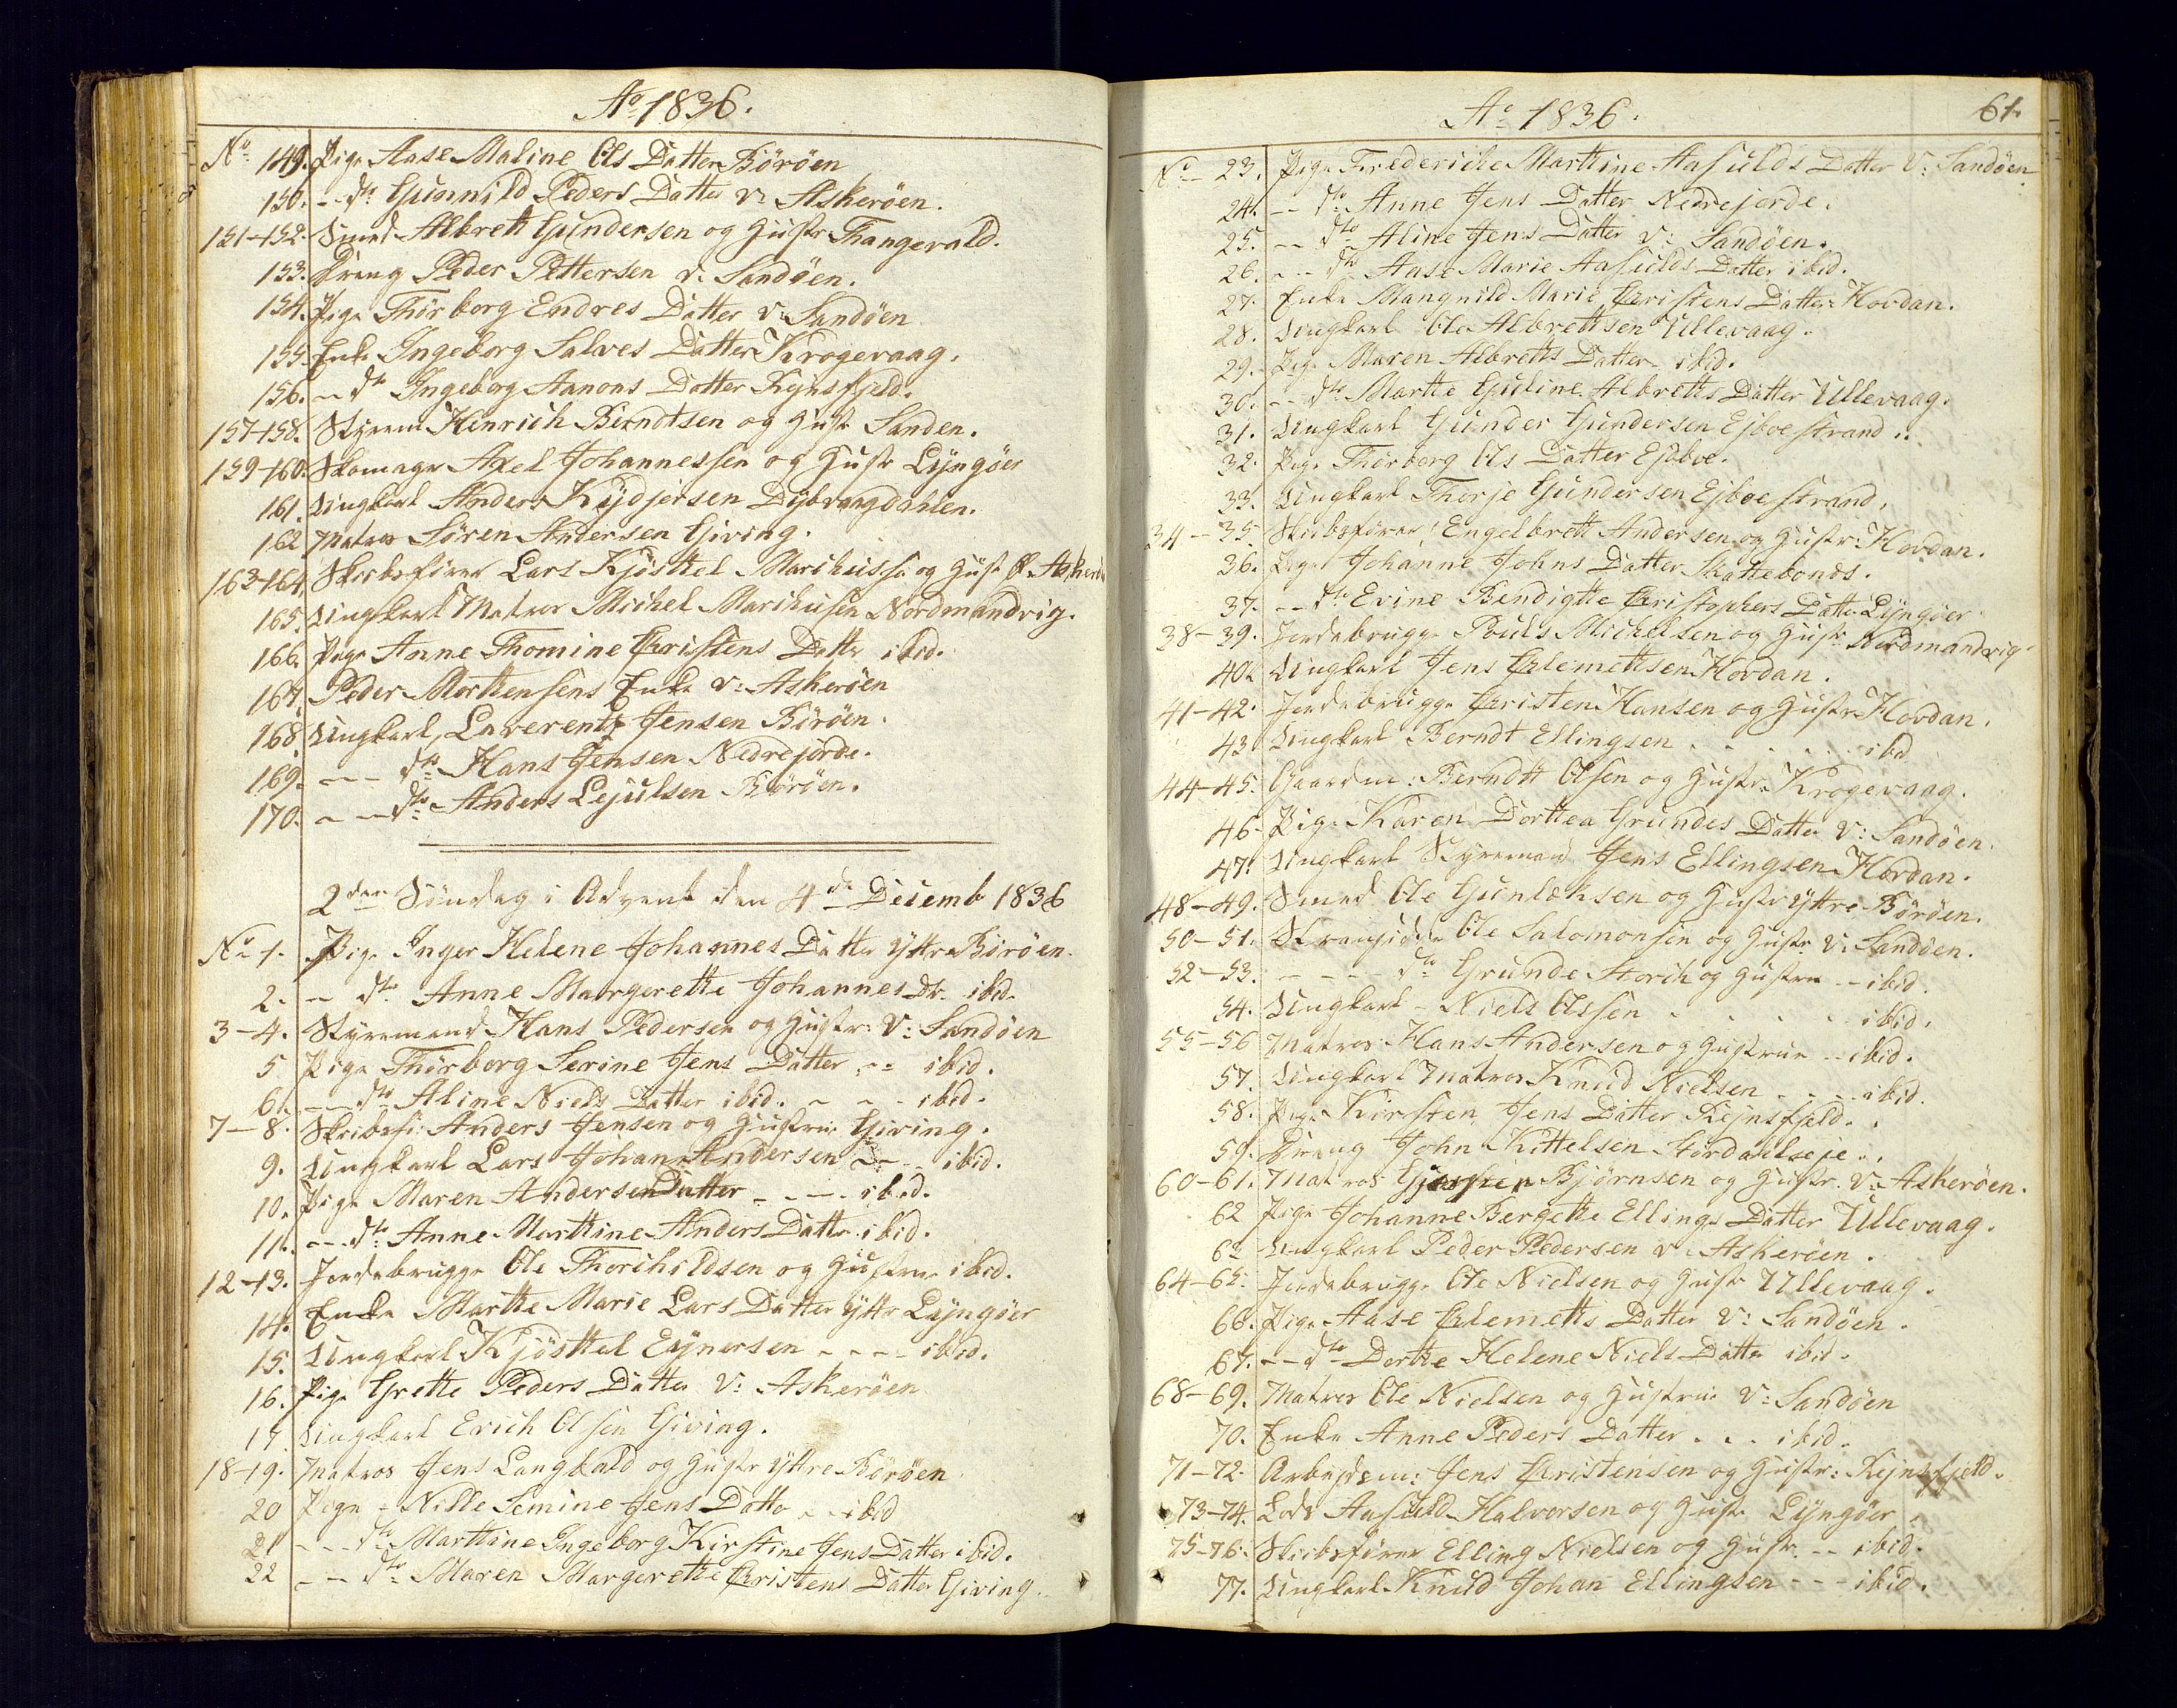 Ao 1836.
No 149. Pige Aase Maline Ols Datter Böröen
150. -- dto Gunnild Peders Datter v: Askeröen.
151-152. Smed Albrett Gundersen og Hustr Trangevald.
153. Dreng Peder Pettersen v: Sandöen.
154. Pige Thorborg Endres Datter v: Sandöen
155. Enke Ingeborg Salves Datter Krogevaag.
156. -- dto Ingeborg Aanons Datter Kejnsfjeld.
157-158. Styrem Henrich Berndtsen og Hust Sanden.
159-160. Skomager Axel Johannessen og Hustr Lyngöer
161. Ungkarl Anders Kydjersen Dybvaagdahlen.
162 Matros Sören Andersen Giving.
163-164. Skibsförer Lars Kjösttel Marchussen og Hust Ø. Askerö
165. Ungkarl Matros Michel Marchusen Nordmandvig.
166. Pige Anne Thomine Christens Dattr ibid.
167. Peder Morttensens Enke v: Askeröen
168 Ungkarl, Laverents Jensen Böröen.
169. --- dto Hans Jensen Nedrejorde.
170. --- dto Anders Lejulsen Böröen.
2den Söndag i Advent den 4de Decemb 1836
No 1. Pige Inger Helene Johannes Datter Yttre Böröen.
2. -- dto Anne Margrette Johannes Dr. ibid.
3-4. Styremand Hans Pedersen og Hustr: V: Sandöen
5 Pige Thorborg Serine Jens Datter -- ibid.
6. --- dto Aline Niels Datter ibid. - - - ibid.
7-8. Skibsf: Anders Jensen og Hustrue Giving.
9. Ungkarl Lars Johan Andersen --- ibid.
10. Pige Maren Andersen Datter - --- ibid.
11. --- dto Anne Marttine Anders Datter ibid.
12-13. Jordebrugge Ole Thorchildsen og Hustrue ibid.
14. Enke Marthe Marie Lars Datter Yttr Lyngöer
15. Ungkarl Kjösttel Eynersen ---- ibid.
16. Pige Grette Peders Datter V: Askeröen
17 Ungkarl Erich Olsen Giving.
18-19. Matros Jens Langkald og Hustr Yttre Böröen
20 Pige - Nille Semine Jens Datto -- ibid
21 --- dto Marttine Ingeborg Kirstine Jens Datter ibid.
22 --- dto Maren Margrette Christens Datter Giving.
Ao 1836.
61.
No 23. Pige Frederiche Marttine Aasulds Datter V: Sandöen
24. --- dto Anne Jens Datter Nedrejorde.
25. --- dto Aline Jens Datter v: Sandöen.
26. --- dto Aase Marie Aasulds Datter ibid.
27. Enke Mangnild Marie Christens Datter Hovdan.
28. Ungkarl Ole Albrettsen Ullevaag.
29. Pige Maren Albretts Datter ibid.
30. --- dto Marthe Guline Albretts Datter Ullevaag.
31. Ungkarl Gunder Gundersen Ejboestrand..
32. Pige Thorborg Ols Datter Ejdboe.
33. Ungkarl Therje Gundersen Ejboestrand.
34-35. Skibsförer Engelbrett Andersen og Hustr: Hovdan.
36. Pige Johanne Johns Datter Skattebonds.
37. --- dto Evine Bendigtte Christophers Datter Lyngöer
38-39. Jordebrugge Pouls Michelsen og Hustr Nordmandvig.
40. Ungkarl Jens Clemettsen Hovdan.
41-42. Jordebrugge Christen Hansen og Hustr Hovdan.
43. Ungkarl Berndt Ellingsen . . . . . . ibid
44-45. Gaardm: Berndtt Olsen og Hustr Krogevaag.
46. Pige Karen Dorttea Grundes Datter V: Sandöen.
47. Ungkarl Styremand Jens Ellingsen Hovdan.
48-49. Smed Ole Gunlaksen og Hustr Yttre Böröen.
50-51. Ole Salomonsen og Hustr V: Sandöen.
52-53. ---- dto Grunde Storch og Hustru -- ibid.
54. Ungkarl - Niels Olssen . . . . ibid.
55-56 Matros Hans Andersen og Hustrue -- ibid.
57. Ungkarl Matros Knud Nielsen . . . ibid.
58. Pige Kirsten Jens Datter Kejnsfjeld..
59. Dreng John Kittelsen Stordahlseje..
60-61. Matros Bjørnsen og Hustr. V: Askeröen.
62 Pige Johanne Bergette Ellings Datter Ullevaag.
63 Ungkarl Peder Pedersen v: Askeröen.
64-65. Jordebrugge Ole Nielsen og Hustr Ullevaag.
66. Pige Aase Clemetts Datter V: Sandöen.
67. --- dto Dorthe Helene Niels Datter ibid.
68-69. Matros Ole Nielsen og Hustrue V: Sandöen
70. Enke Anne Peders Datter . . . ibid.
71-72. Arbejdsm: Jens Christensen og Hustr: Kejnsfjeld.
73-74. Lods Aasuld Halvorsen og Hustr Lyngöer.
75-76. Skibsförer Elling Nielsen og Hustr. -- ibid.
77. Ungkarl Knud Johan Ellingsen --- ibid.